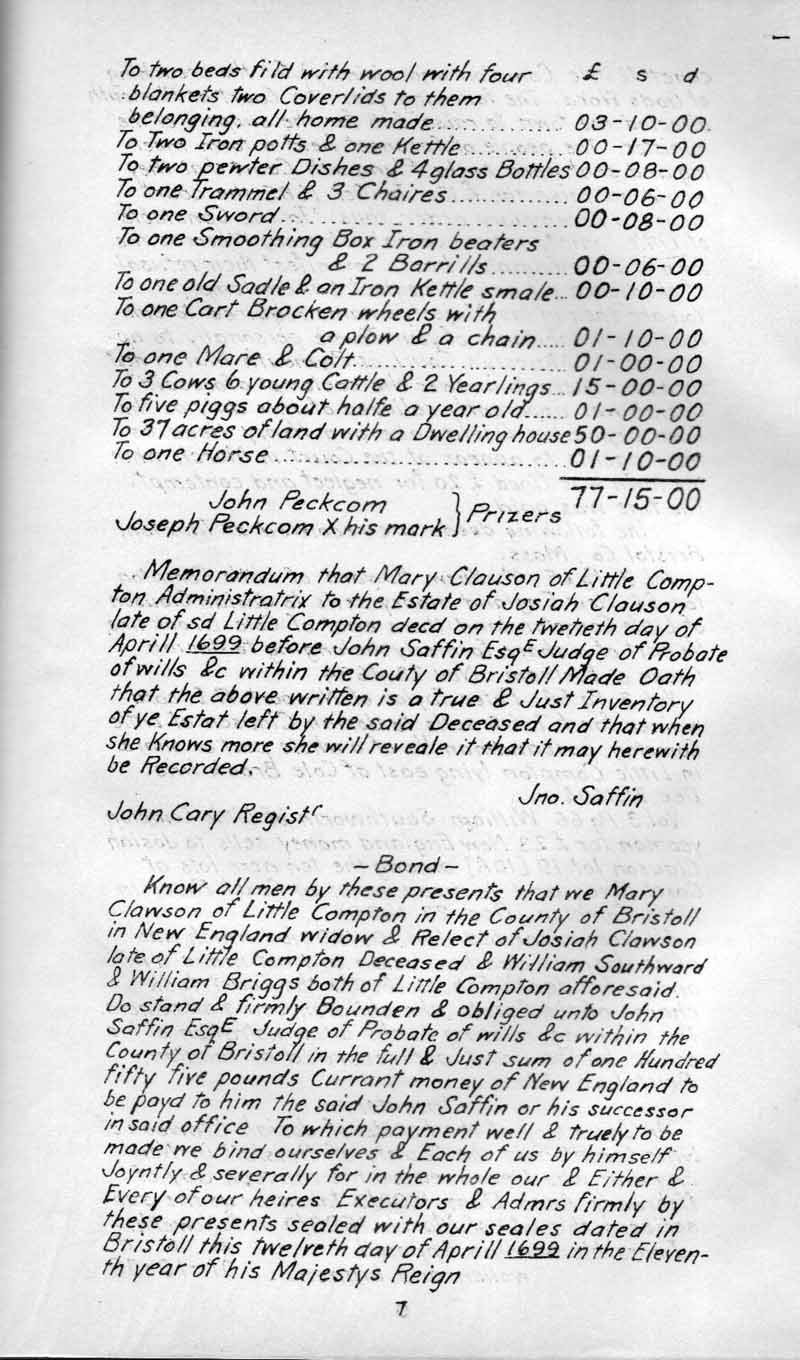 To two beds fild with wool with four £ s d
blankets two Coverlids to them
belonging, all home made.............. 03-10-00
To Two Iron potts & one Kettle............ 00-17-00
To two pewter Dishes & 4 glass Bottles 00-08-00
To one Trammel & 3 Chaires.............. 00-06-00
To one Sword.................................. 00-08-00
To one Smoothing Box Iron beaters
& 2 Barrills.......... 00-06-00
To one old Sadle & an Iron Kettle smale... 00-10-00
To one Cart Brocken wheels with
a plow & a chain..... 01-10-00
To one Mare & Colt......................... 01-00-00
To 3 Cows 6 young Cattle & 2 Yearlings... 15-00-00
To five piggs about halfe a year old...... 01-00-00
To 37 acres of land with a Dwelling house 50-00-00
To one Horse.................................. 01-10-00
John Peckcom } Prizers 77-15-00
Joseph Peckcom X his mark
Memorandum that Mary Clauson of Little Comp-
ton Administratrix to the Estate of Josiah Clauson
late of sd Little Compton decd on the twetieth day of
Aprill 1699 before John Saffin EsqE Judge of Probate
of wills &c within the Couty of Bristoll Made Oath
that the above written is a true & Just Inventory
of ye Estat left by the said Deceased and that when
she Knows more she will reveale it that it may herewith
be Recorded.
Jno. Saffin
John Cary Registr
- Bond -
Know all men by these presents that we Mary
Clawson of Little Compton in the County of Bristoll
in New England widow & Relect of Josiah Clawson
late of Little Compton Deceased & William Southward
& William Briggs both of Little Compton afforesaid.
Do stand & firmly Bounden & obliged unto John
Saffin EsqE Judge of Probate of wills &c within the
County of Bristoll in the full & Just sum of one Hundred
fifty five pounds Currant money of New England to
be payd to him the said John Saffin or his successor
in said office To which payment well & truely to be
made we bind ourselves & Each of us by himself
Joyntly & severally for in the whole our & Either &
Every of our heires Executors & Admrs firmly by
these presents sealed with our seales dated in
Bristoll this twelveth day of Aprill 1699 in the Eleven-
th year of his Majestys Reign
7